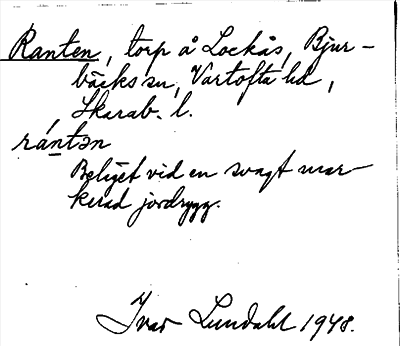 Ranten, torp å Lockås, Bjur-
bäcks sn, Vartofta hd,
Skarab. l.
rántən
Beläget vid en svagt mar-
kerad jordrygg.
Ivar Lundahl 1948.